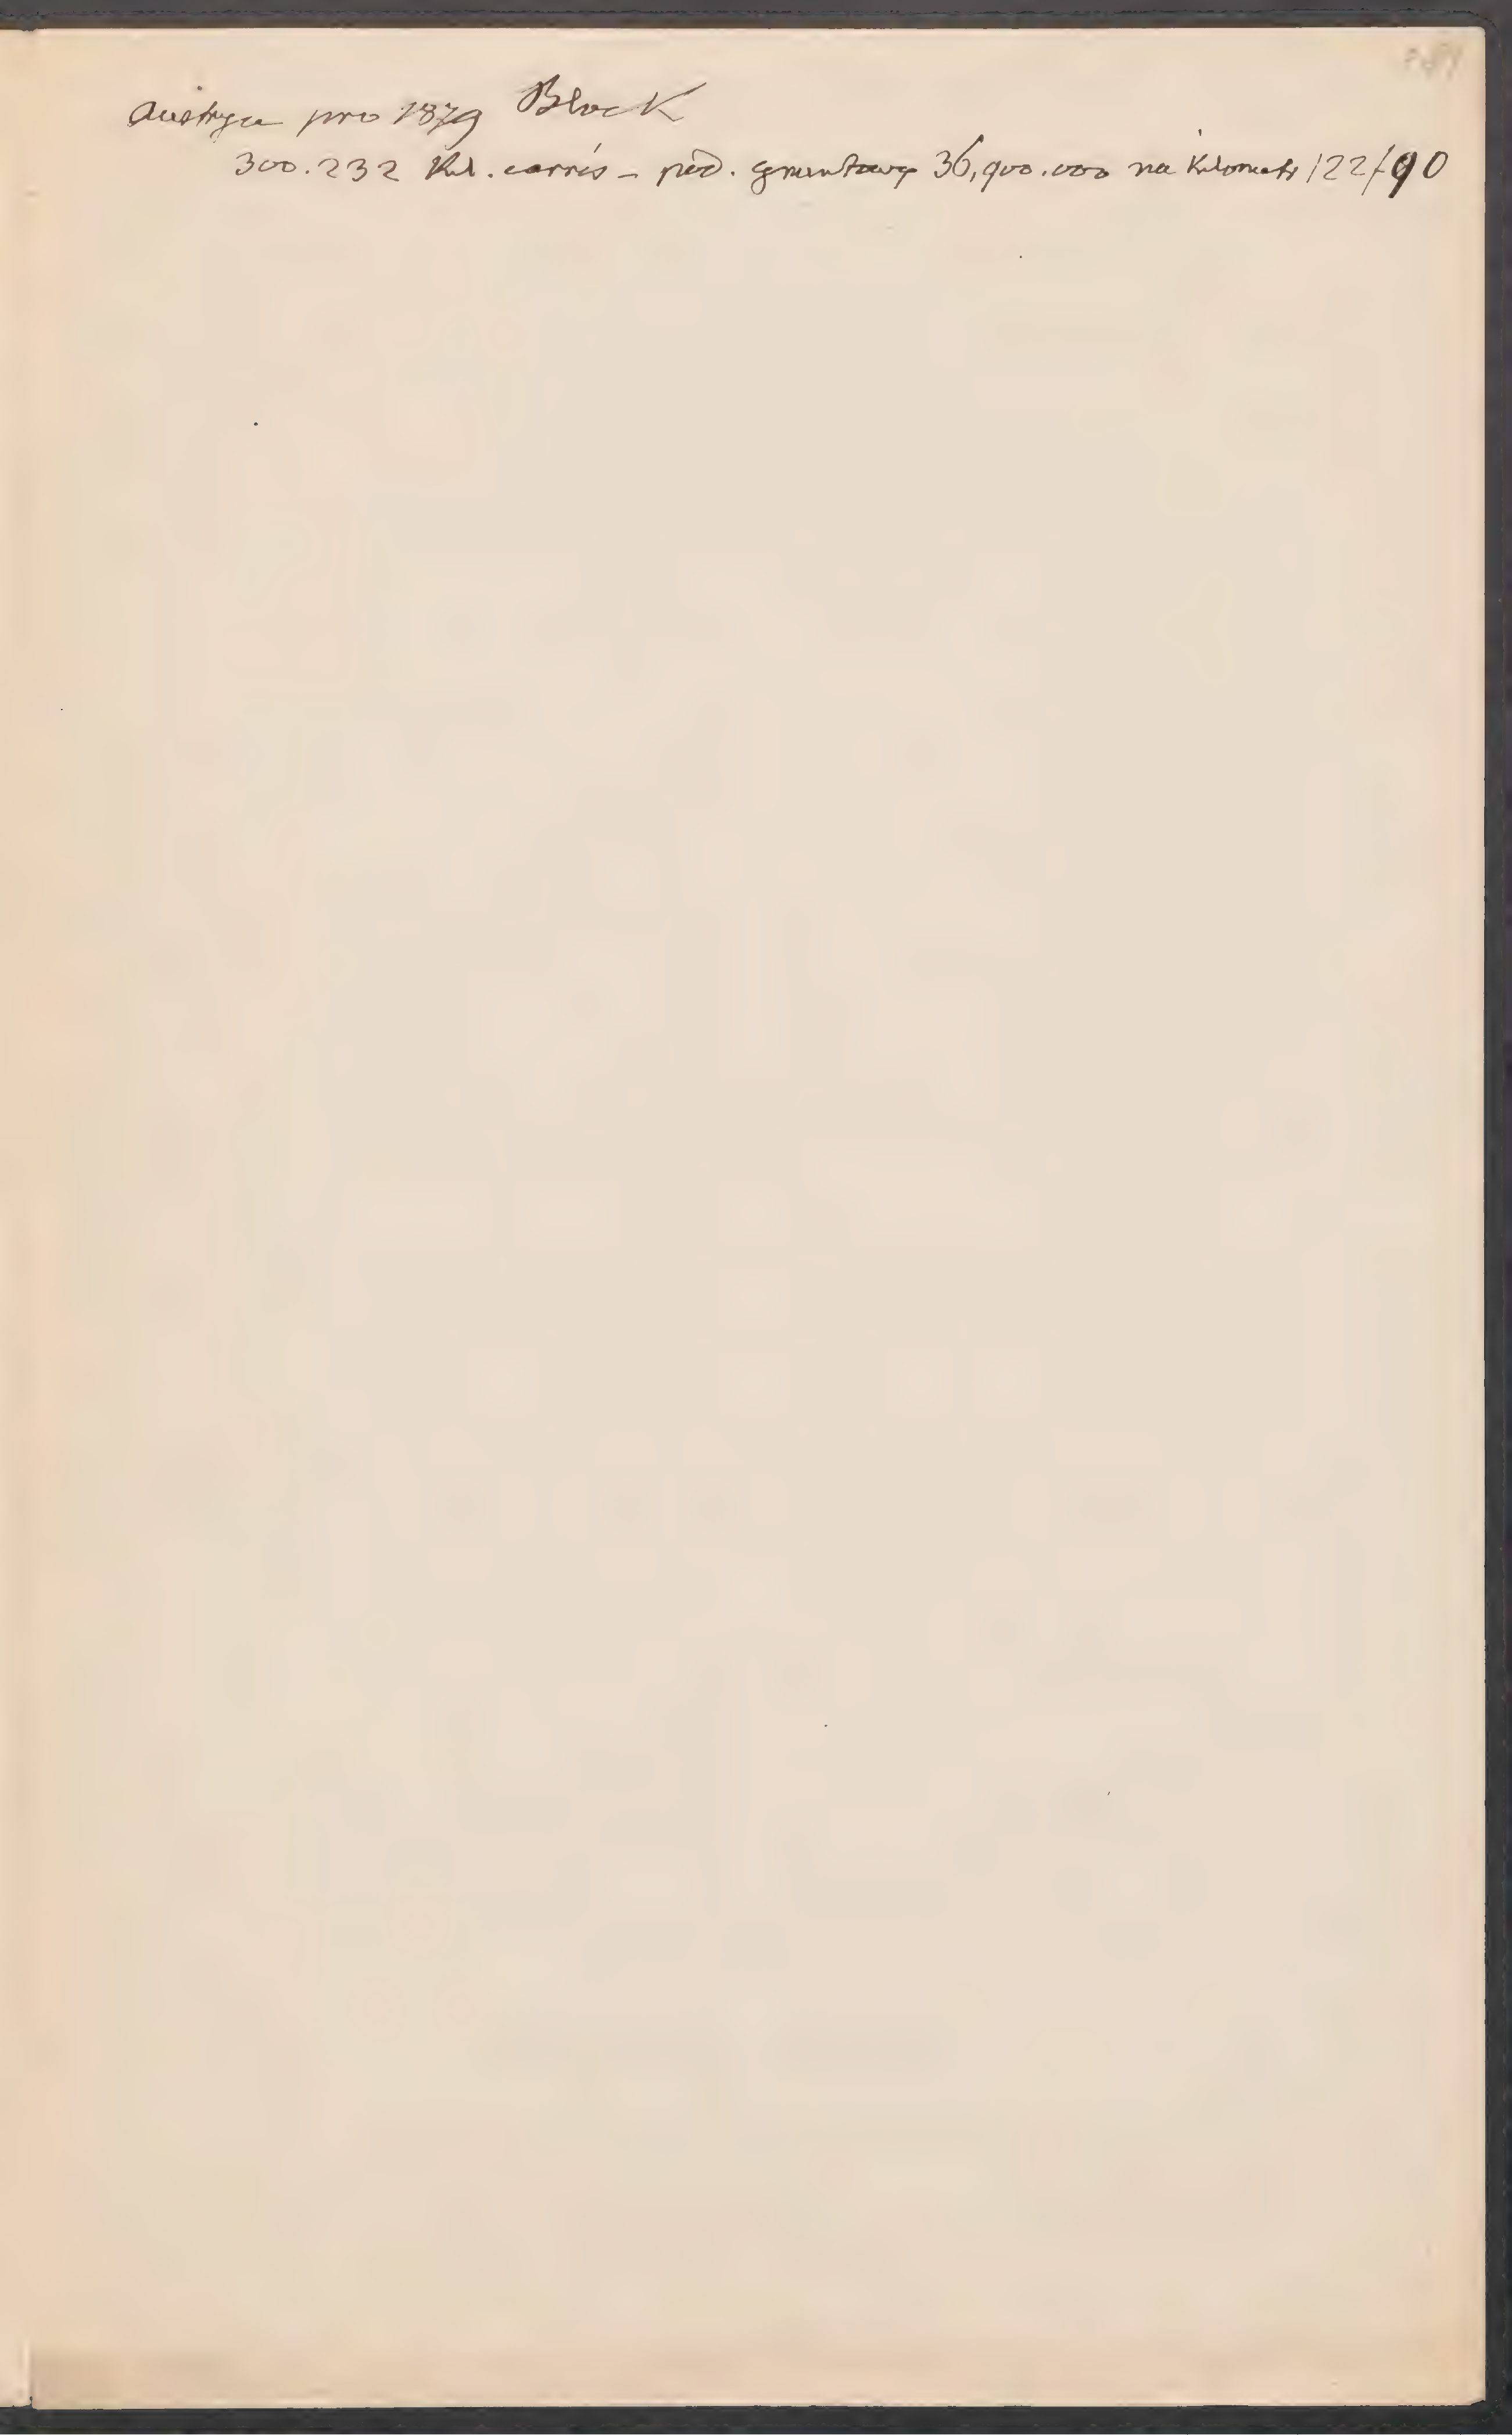 Austrya pro 1879 Block
300.232 Kil. carrés – pod. gruntowy 36,900.000 na kilometr 122/90